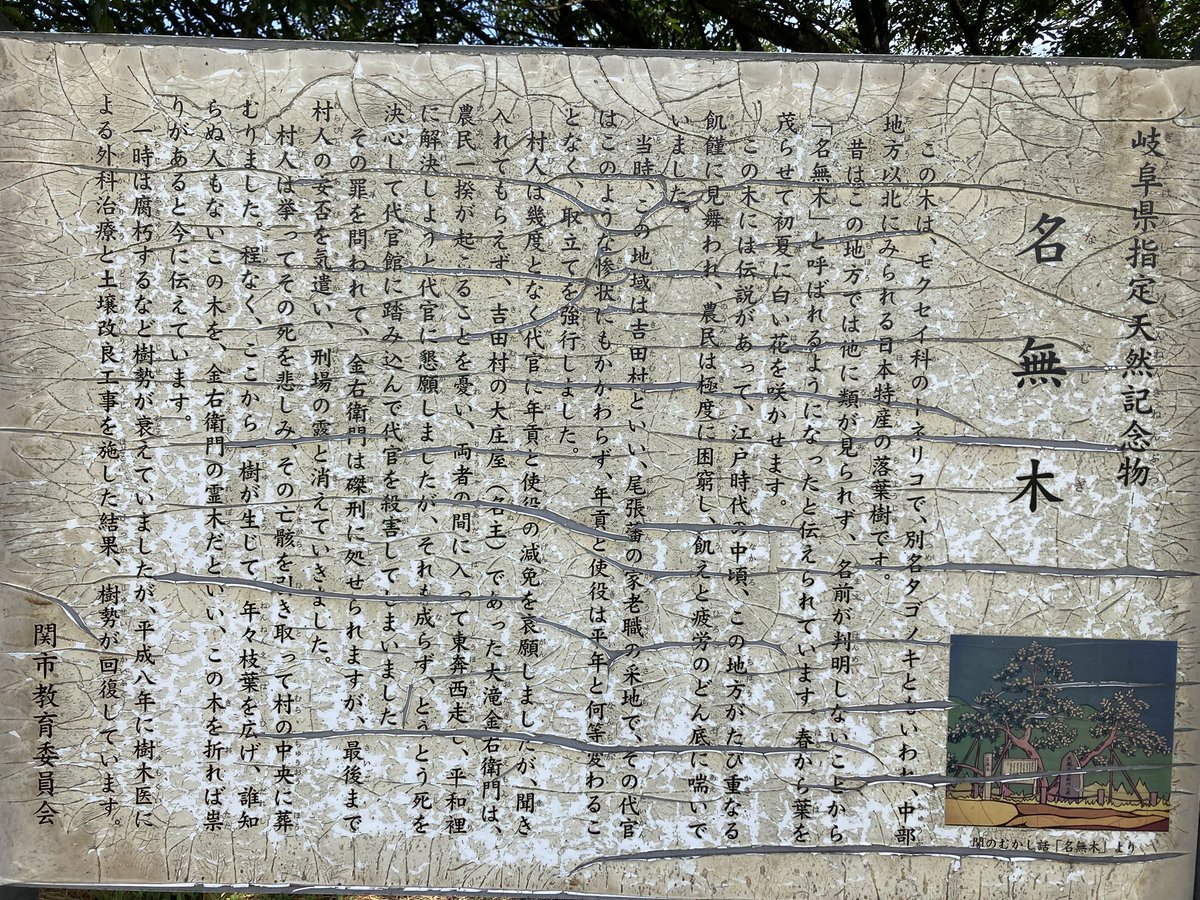 岐阜県指定天然記念物
名無木
この木は、モクセイ科のトネリコで、別名タゴノキともいわれ、中部
地方以北にみられる日本特産の落葉樹です。
昔はこの地方では他に類が見られず、名前が判明しないことから
「名無木」と呼ばれるようになったと伝えられています。春から葉を
茂らせて初夏に白い花を咲かせます。
この木には伝説があって、江戸時代の中頃、この地方がたび重なる
飢饉に見舞われ、農民は極度に困窮し、飢えと疲労のどん底に喘いで
いました。
当時、この地域は吉田村といい、尾張藩の家老職の采地で、その代官
はこのような惨状にもかかわらず、年貢と使役は平年と何等変わるこ
となく、取立てを強行しました。
村人は幾度となく代官に年貢と使役の減免を哀願しましたが、聞き
入れてもらえず、吉田村の大庄屋(名主)であった大滝金右衛門は、
農民一揆が起こることを憂い、両者の間に入って東奔西走し、平和裡
に解決しようと代官に懇願しましたが、それも成らず、とうとう死を
決心して代官館に踏み込んで代官を殺害してしまいました
その罪を問われて、金右衛門は磔刑に処せられますが、最後まで
村人の安否を気遣い、刑場の露と消えていきました。
村人は挙ってその死を悲しみ、その亡骸を引き取って村の中央に葬
むりました。程なく、ここから樹が生じて、年々枝葉を広げ、誰知
らぬ人もないこの木を、金右衛門の霊木だといい、この木を折れば祟
りがあると今に伝えています。
一時は腐朽するなど樹勢が衰えていましたが、平成八年に樹木医に
よる外科治療と土壌改良工事を施した結果、樹勢が回復しています。
関市教育委員会
関のむかし話「名無木」より